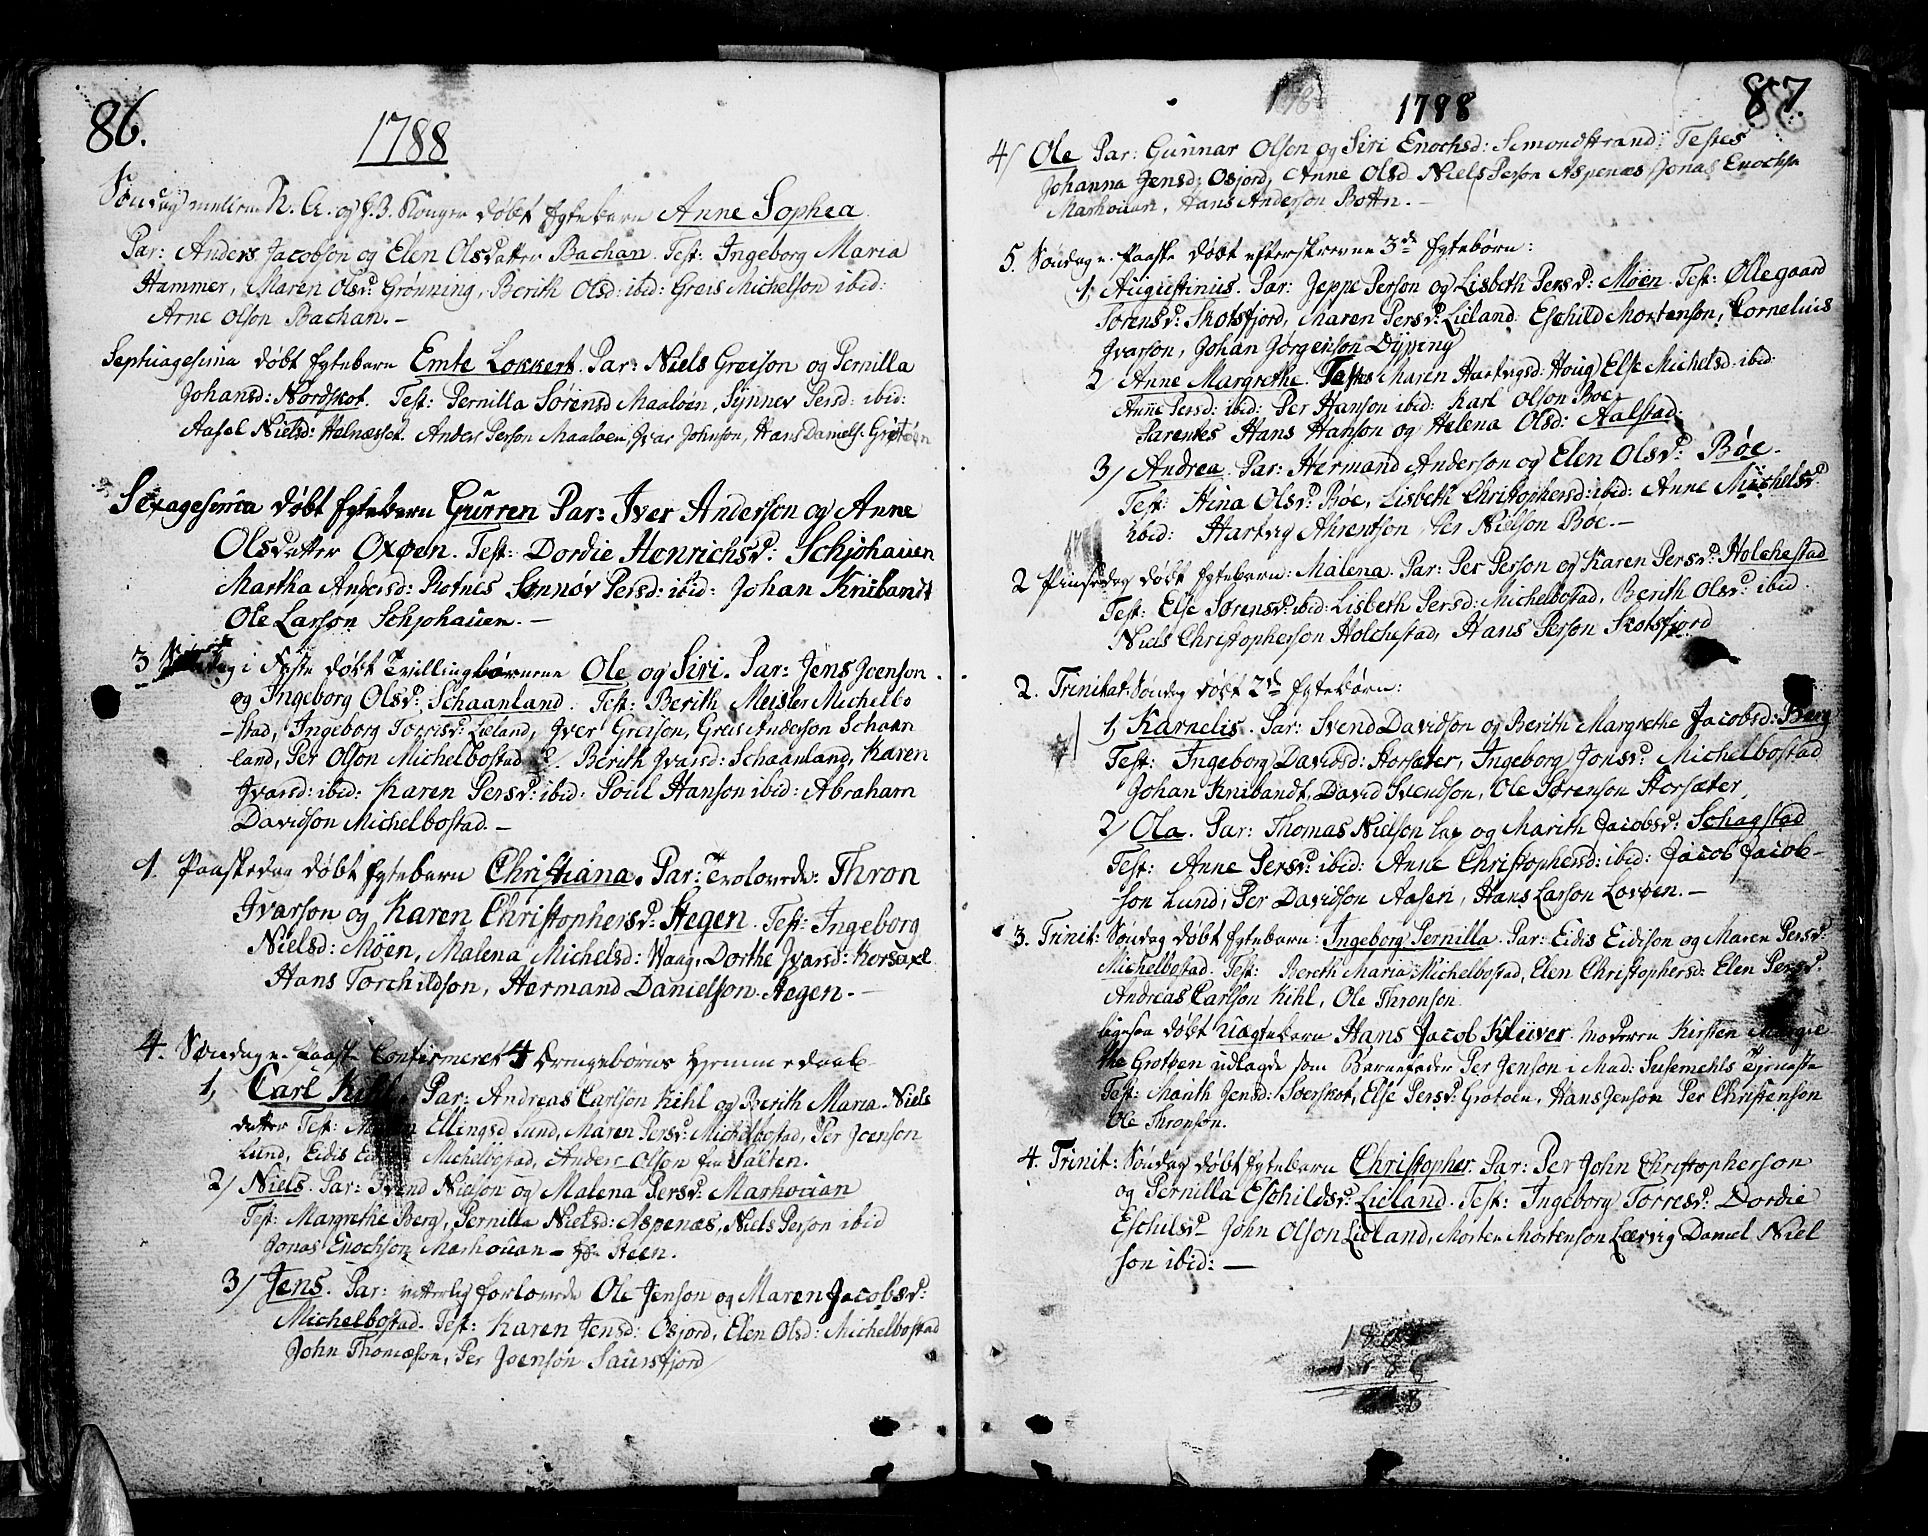 86.
1788
Søndag mellem N. A. og H. 3. Konger døbt Ægtebarn Anne Sophea
Par: Anders Jacobson og Elen Olsdatter Bachan. Test: Ingeborg Maria
Hammer, Maren Olsd: Grønning, Berith Olsd: ibid: Greis Michelson ibid:
Arne Olson Bachan. –
Septuagesima døbt Ægtebarn Emte Lokkert. Par: Niels Greison og Pernilla
Johansd: Nordskot. Test: Pernilla Sørensd Maaløen, Synnev Persd: ibid:
Aasel Nielsd: Helnæsset. Ander Person Maaløen, Ivar Johnson, Hans Daniels. Grøtøen
Sexagesima døbt Ægtebarn Gurren Par: Iver Anderson og Anne
Olsdatter Oxøen. Test: Dordie Henrichsd: Schjohauen
Martha Andersd: Rotnes Sønnøv Persd: ibid: Johan Knibandt
Ole Larson Schjohauen. –
3 Søndag i Faste døbt Tvillingbørnene Ole og Siri. Par: Jens Joenson
og Ingeborg Olsd: Schaanland. Test: Berith Meisler Michelbo
-stad, Ingeborg Torrisd: Lieland, Iver Greison, Greis Anderson Schaan
land, Per Olson Michelbostad 2/ Berith Ivarsd: Schaanland, Karen
Ivarsd: ibid: Karen Persd: ibid: Poul Hanson ibid: Abraham
Davidson Michelbostad. –
1. Paaskedag døbt Ægtebarn Christiana. Par: Trolovede: Thron
Ivarson og Karen Christophersd: Hegen. Test: Ingeborg
Nielsd: Møen, Malena Michelsd: Vaag, Dorthe Ivarsd:
Hans Torchildson, Hermand Danielson Hegen. –
4. Søndag e. Paask Confirmeret 4 Drengebørns Hjemmedaab
1, Carl Kihl. Par: Andreas Carlson Kihl og Berith Maria Niels
datter Test: Ellingsd Lund, Maren Persd: Michelbostad, Per Joenson
Lund, Eidis Michelbostad, Anders Olson fra Salten.
2/ Niels. Par: Svend Nielson og Malena Persd: Markouan
Test: Margrethe Berg, Pernilla Nielsd: Aspenæs, Niels Person ibid
Jonas Enochson Markouan – Steen.
3/ Jens. Par: vitterlig forlovede Ole Jenson og Maren Jacobsd:
Michelbostad. Test: Karen Jensd: Osjord, Elen Olsd: Michelbostad
John Thomæson, Per Joenson Saursfjord
87.
1788
4/ Ole Par: Gunnar Olson og Siri Enochsd: Simondstrand; Testes
Johanna Jensd: Osjord, Anne Olsd Niels Person Aspenæs Jonas Enochsn
Markouan, Hans Anderson Bottn. –
5. Søndag e. Paaske døbt efterskrevne 3de Ægtebørn:
1, Augustinus. Par: Jeppe Person og Lisbeth Persd: Møen. Test: Ollegaard
Sørensd: Skotsfjord, Maren Persd: Lieland. Eschild Mortenson, Cornelius
Ivarson, Johan Jørgenson Dyping
2 Anne Margrethe. Testes Maren Hartvigsd: Houg, Else Michelsd: ibid:
Anne Persd: ibid: Per Hanson ibid: Karl Olson Boe
Parentes Hans Hanson og Helena Olsd: Aalstad.
3/ Andrea. Par: Hermand Anderson og Elen Olsd: Bøe.
Test: Hina Olsd: Bøe, Lisbeth Christophersd: ibid: Anne Michelsd
ibid: Hartvig Ahrentson, Per Nielson Bøe. –
2 Pinsedag døbt Ægtebarn: Malena. Par: Per Person og Karen Persd: Holchestad
Test: Else Sørensd: ibid: Lisbeth Persd: Michelbostad, Berith Olsd: ibid:
Niels Christopherson Holchestad, Hans Person Skotsfjord
2. Trinitat: Søndag døbt 2de Ægtebørn:
1, Karnelis. Par: Svend Davidson og Berith Margrethe Jacobsd: Berg
Test: Ingeborg Davidsd: Horsæter, Ingeborg Jonsd: Michelbostad
Johan Knibandt, David Svendson, Ole Sørenson Horsæter
2/ Ola. Par: Thomas Nielson Lap og Marith Jacobsd: Schagstad
Test: Anne Persd: ibid: Anne Christophersd: ibid: Jacob Jacob-
son Lund, Per Davidson Aasen, Hans Larson Løvøen. –
3. Trinit: Søndag døbt Ægtebarn: Ingeborg Pernilla. Par: Eidis Eidison og Maren Persd:
Michelbostad. Test: Bereth Maria Michelbostad, Elen Christophersd: Elen Persd:
Andreas Carlson Kihl, Ole Thronson
ligesaa døbt Uægtebarn Hans Jacob Klüwer. Moderen Kirsten Margre
the Grotøen udlagde som Barnefader Per Jenson i Mad: Susemehls Tjeneste
Test: Marith Jensd: Sørskot, Else Persd: Grotøen, Hans Jenson Per Christenson
Ole Thronson.
4. Trinit: Søndag døbt Ægtebarn Christopher. Par: Per John Christopherson
og Pernilla Eschildsd: Lieland. Test: Ingeborg Torresd: Dordie
Eschilsd: John Olson Lieland, Morten Mortenson Lærvig Daniel Niel
son ibid: –